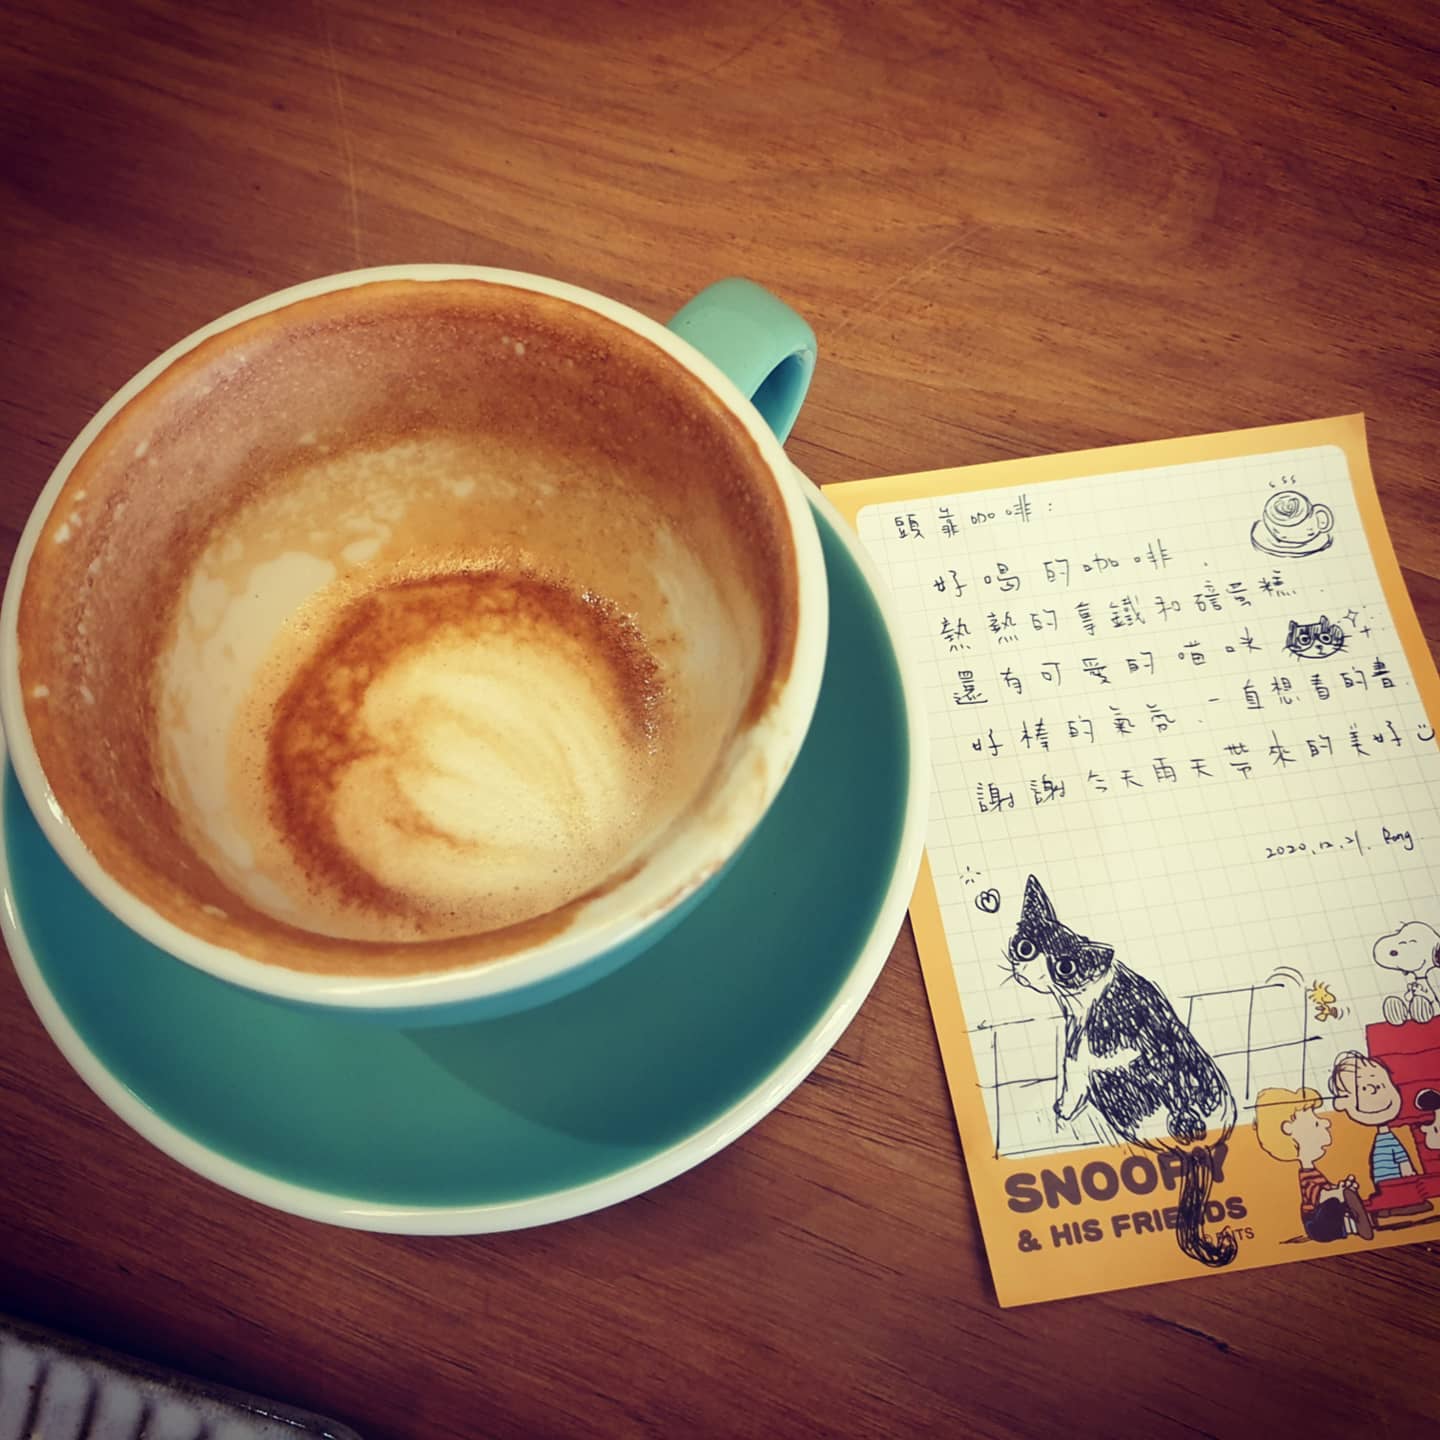 頭靠咖啡：
好喝的咖啡．
熱熱的拿鐵和磅蛋糕．
還有可愛的喵咪
好棒的氣氛．一直想看的書．
謝謝今天雨天帶來的美好
2020.12.21. Rong
SNOOPY
& HIS FRIENDS